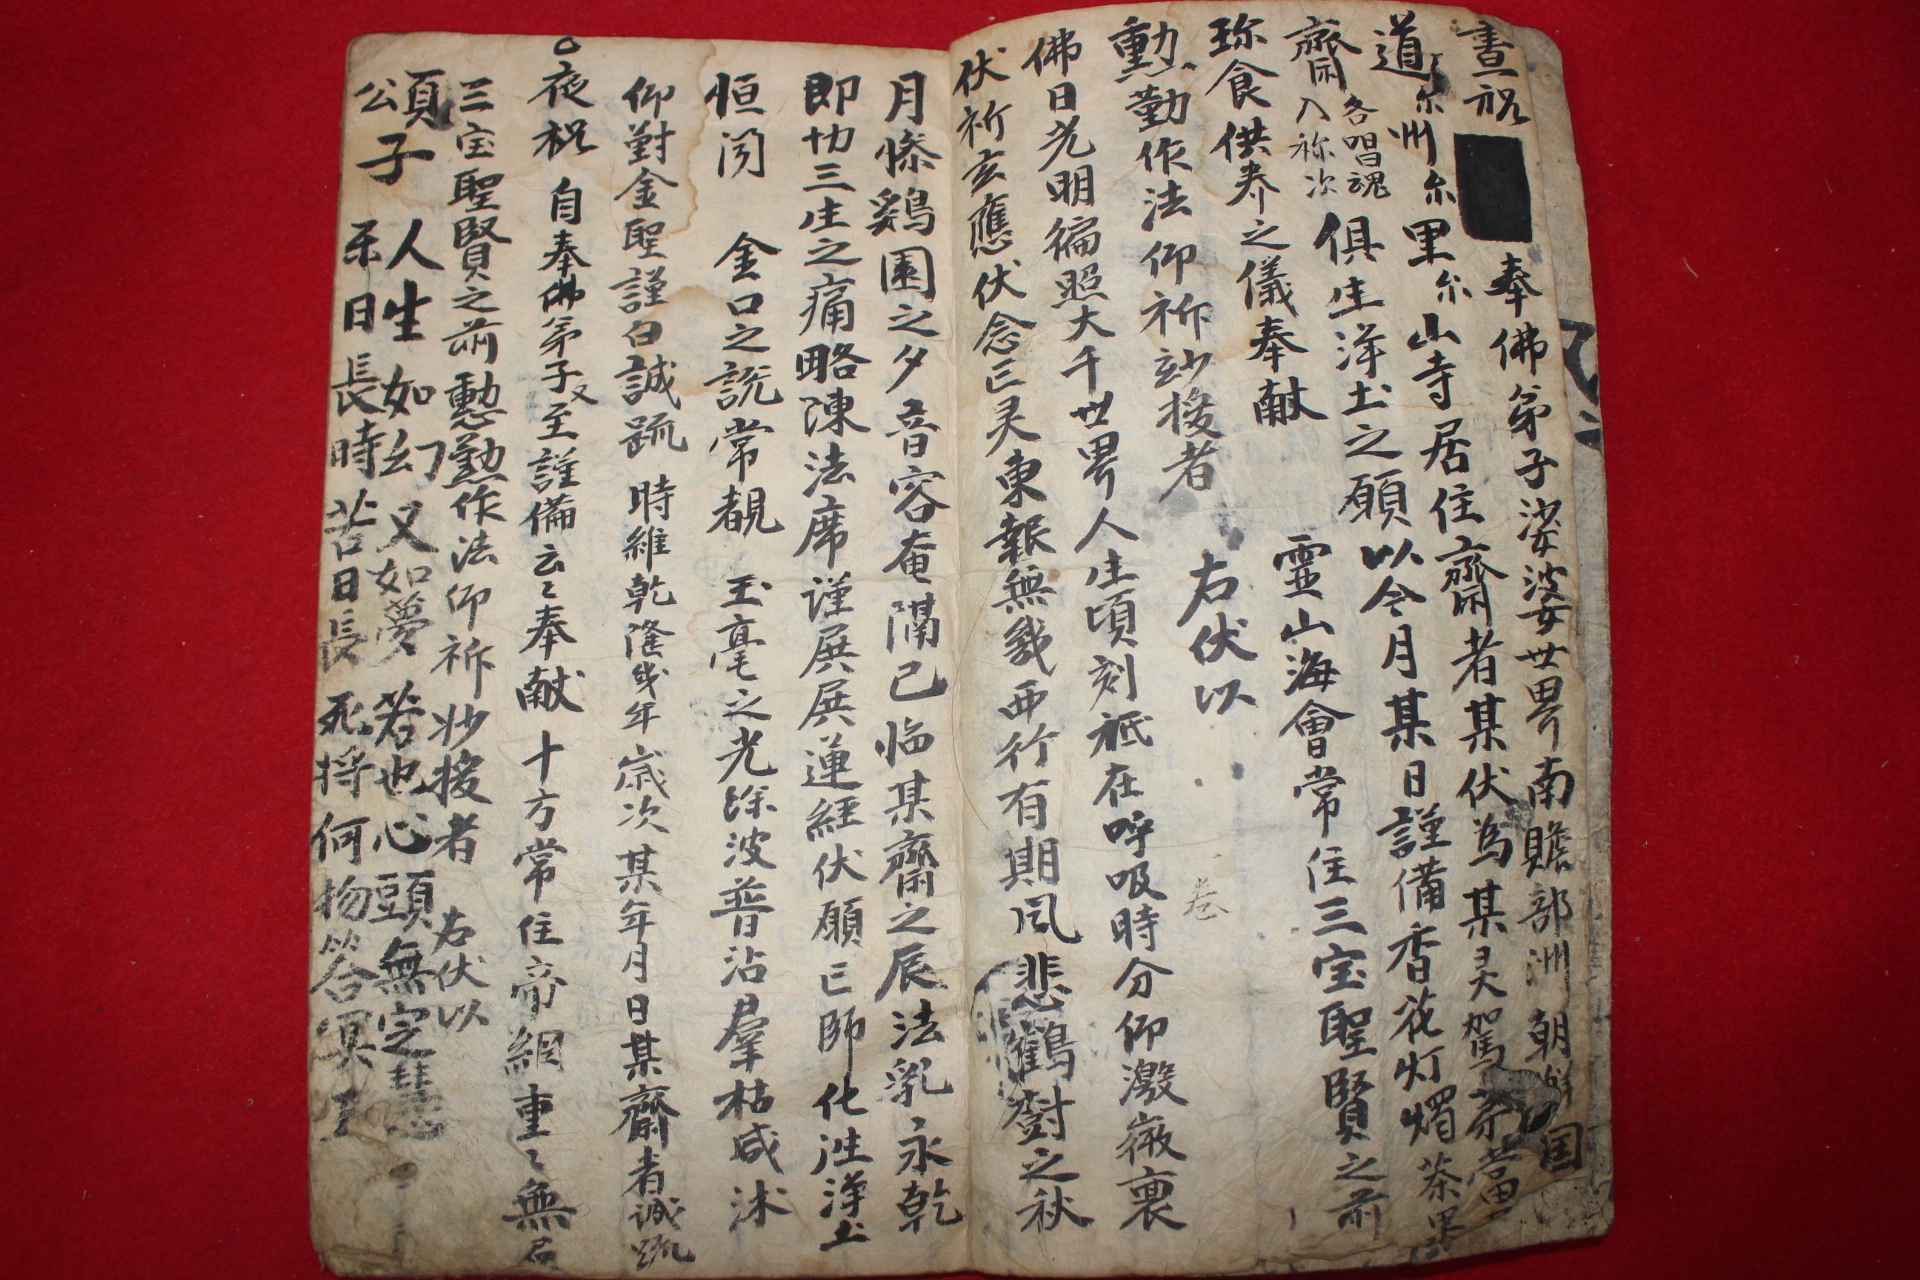 晝祝 奉佛弟子娑婆世界南贍部洲朝鮮国
道尔州尔里尔山寺居住齋者某伏為某灵駕䓁當
齋各唱魂入祢次俱生淨土之願以今月某日謹備香花灯燭茶果
珎食供养之儀奉献 靈山海會常住三宝聖賢之前
懃勤作法仰祈妙援者 右伏以
佛日光明徧照大千世界人生頃刻祗在呼吸時分仰激微衷
伏祈玄應伏念亡灵東報無幾西行有期风悲鶴樹之秋
月慘鷄園之夕音容奄隔已临某齋之辰法乳永乾
即切三生之痛略陳法席谨展展蓮経伏願亡師化徃淨土
恒闻 金口之說常覩 玉毫之光除波普沾羣枯咸沐
仰對金聖謹白誠䟽 時維乾隆幾年歲次某年月日某齋者誠䟽
○夜祝 自奉佛弟子又至謹備云〻奉献 十方常住帝網重〻無尽
三宝聖賢之前懃懃作法仰祈妙援者 右伏以
頌子 人生如幻又如夢若也心頭無定慧
公 示日長時苦日長死将何物答冥王
卷